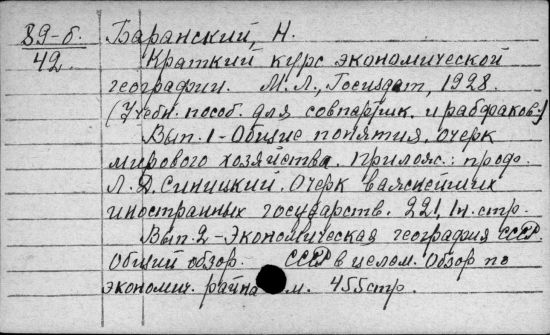 89-б. Баранский, Н.
42. Краткий курс экономической
географии. М.Л., Госиздат, 1928.
(Учебн. пособ. для совпартшк. и рабфаков.)
Вып. 1 - Общие понятия. Очерк
мирового хозяйства. Прилож.: проф.
Л.Д. Синицкий. Очерк важнейших
иностранных государств. 221, 1н. стр.
Вып. 2 - Экономическая география СССР.
Общий обзор. СССР в целом. Обзор по
экономич. района м. 455 стр.